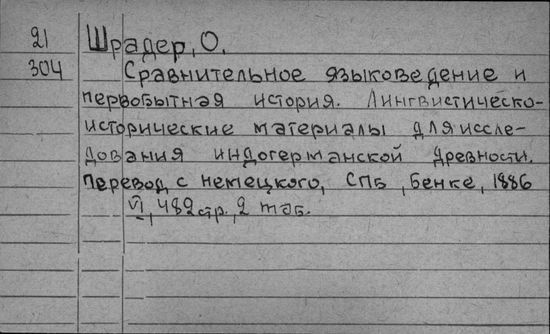 21 Шрадер, О.
304 Сравнительное языковедение и
первобытная история. Лингвистическо-
исторические материалы для иссле-
дования индогерманской древности.
Перевод с немецкого, СПБ, Бенке, 1886
VI, 482 стр., 2 таб.